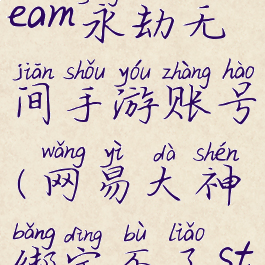 eam永劫无
jiān shǒu yóu zhàng hào
间手游账号
wǎng yì dà shén
(网易大神
bǎng dìng bù liǎo
绑定不了st